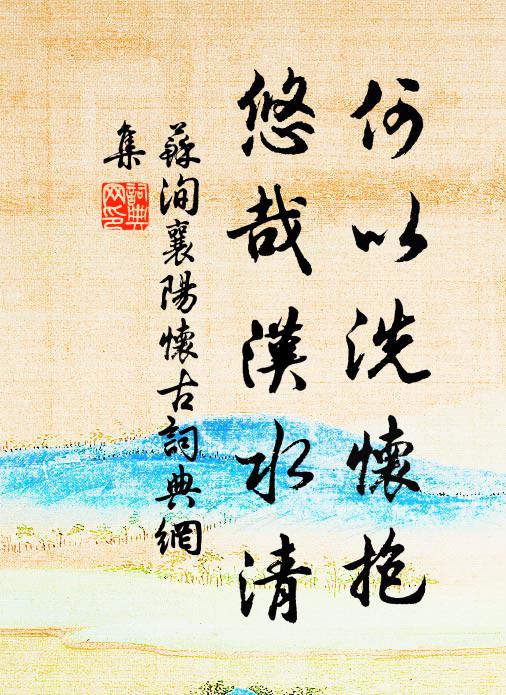 何以洗懷抱
悠哉漢水清
蘇洵襄陽懷古詞典網
集
詞典
网印